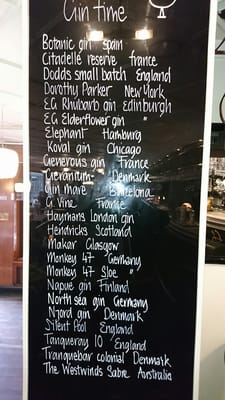 Gin time
Botanic gin Spain
Citadelle reserve france
Dodds small batch England
Dorothy Parker New York
EG Rhubarb gin Edinburgh
EG Elderflower gin "
Elephant Hamburg
Koval gin Chicago
Generous gin France
Geranium Denmark
Gin mare Barcelona
G Vine France
Haymans London gin
Hendricks Scotland
Makar Glasgow
Monkey 47 Germany
Monkey 47 Sloe "
Napue gin Finland
North sea gin Germany
Njord gin Denmark
Silent Pool England
Tanqueray 10 England
Tranquebar colonial Denmark
The Westwinds Sabre Australia